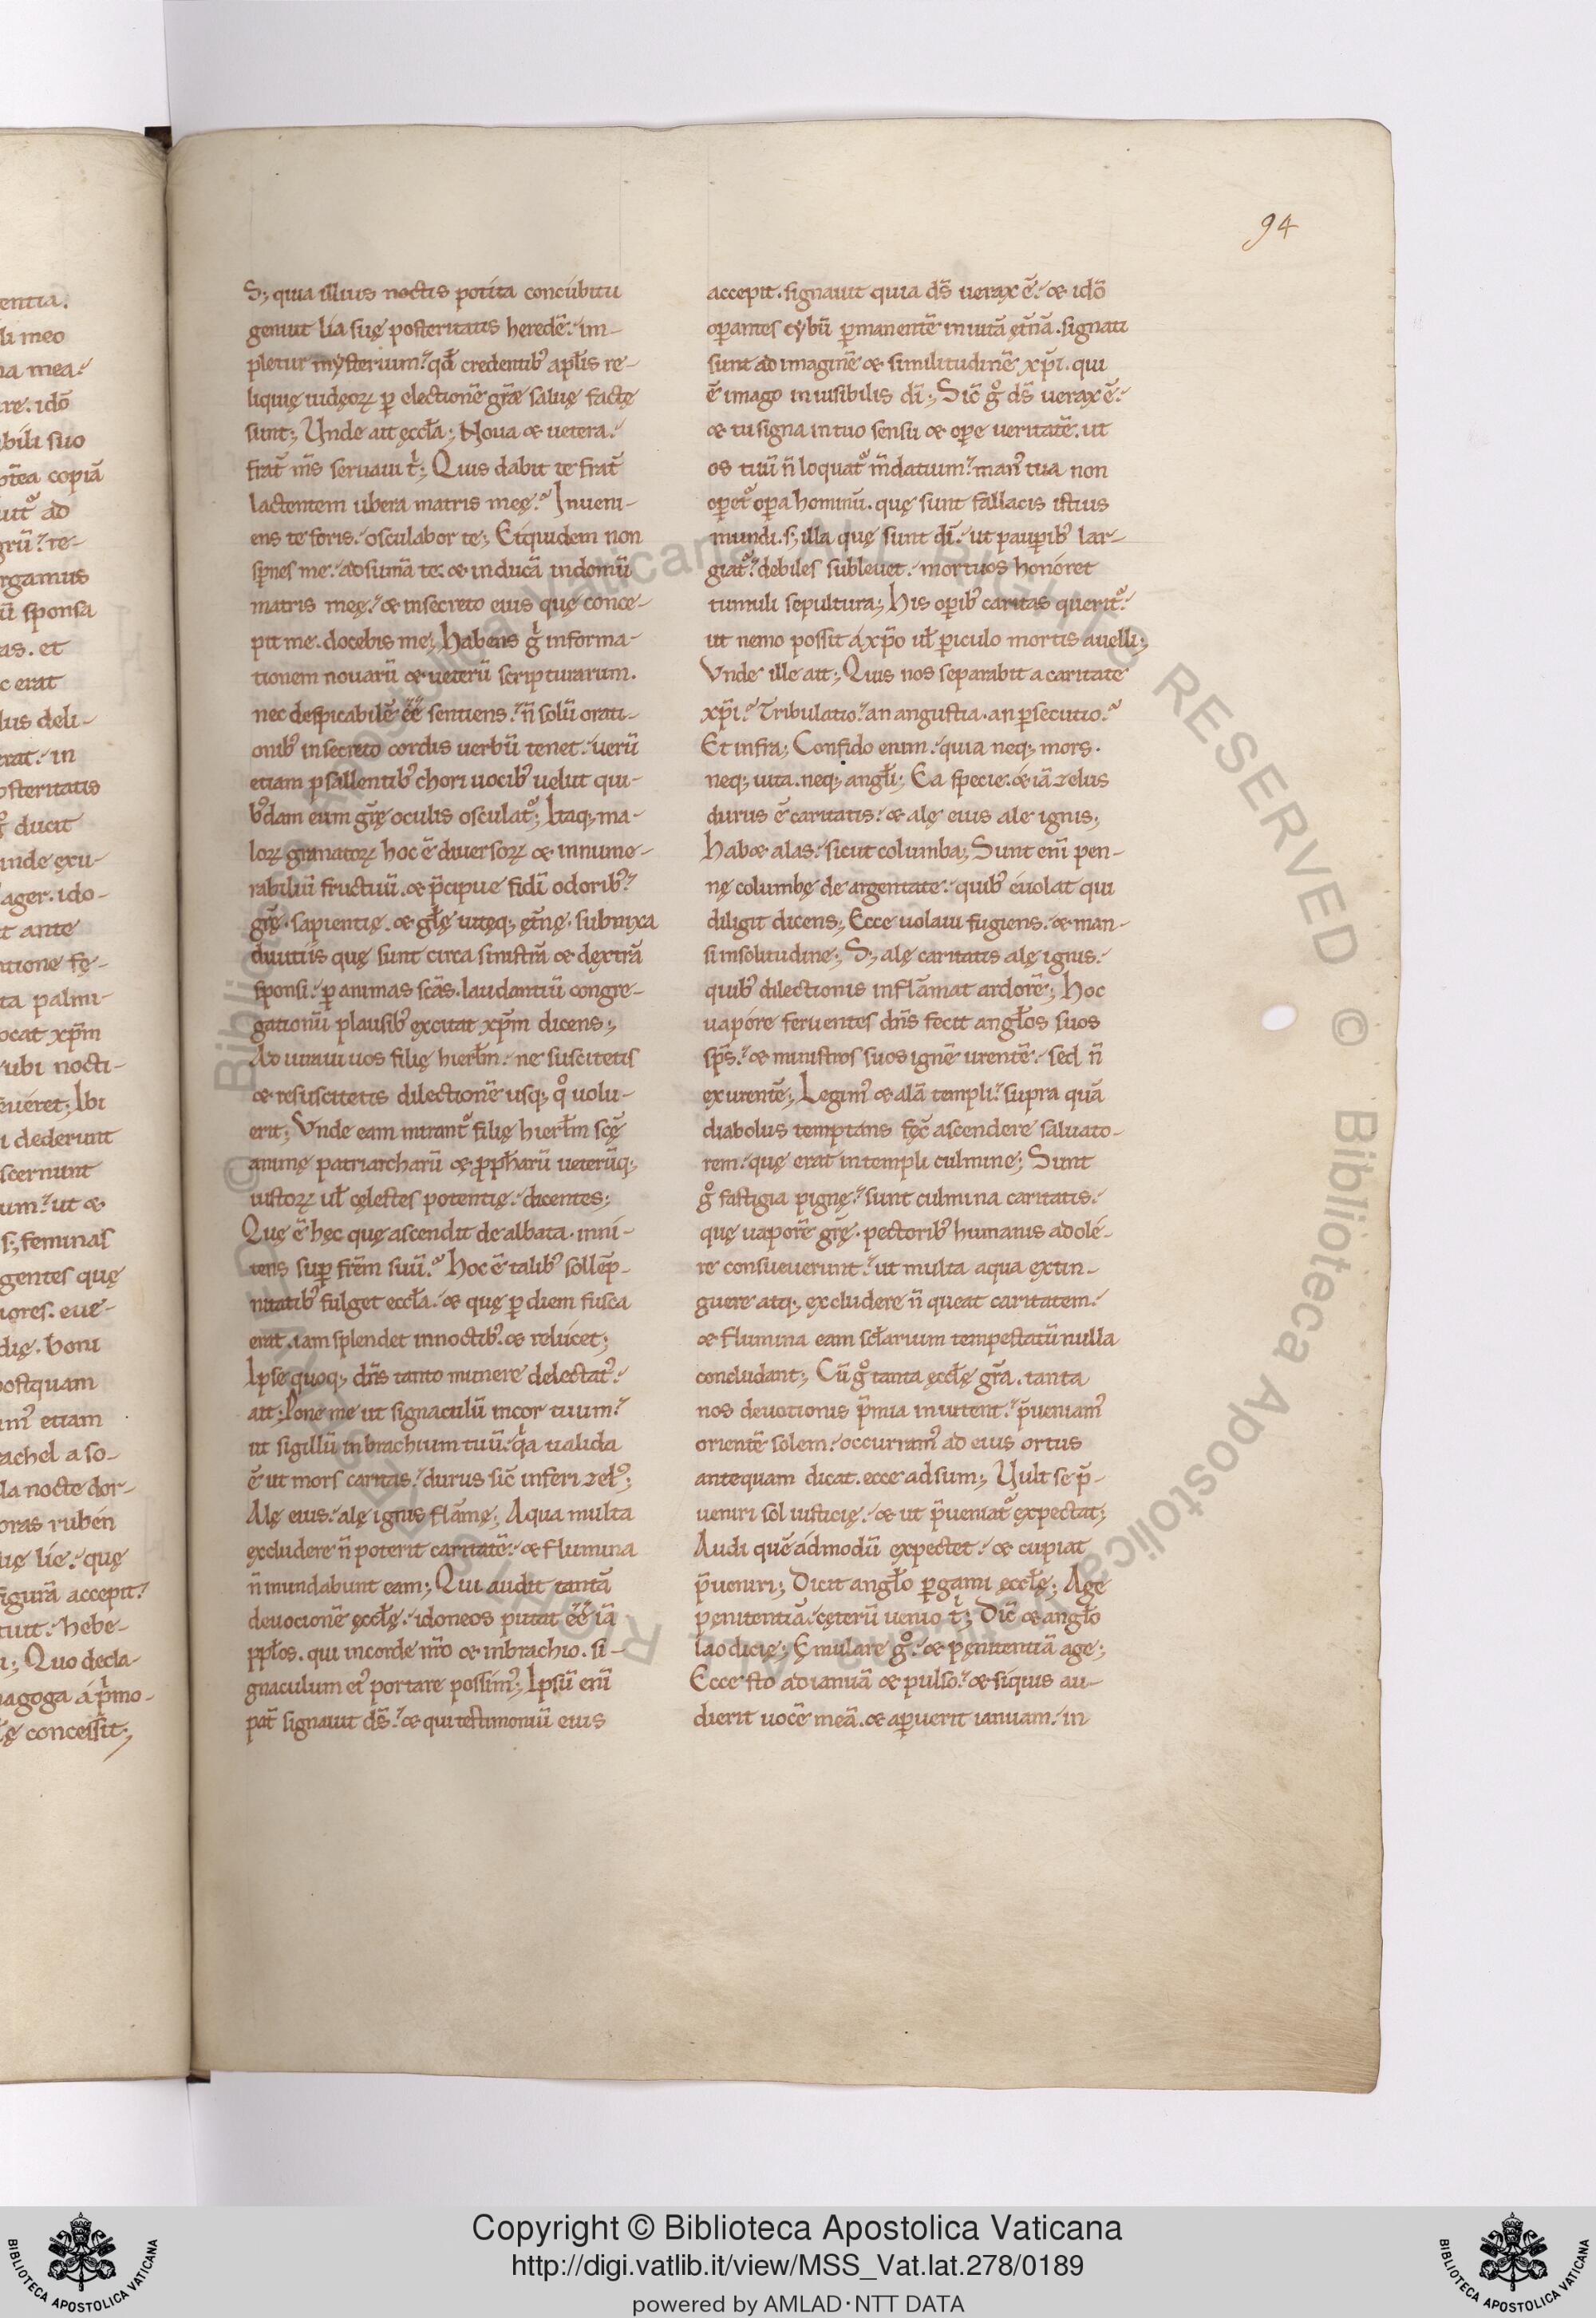 94
entia.
li meo
na mea.
re. idō
bili suo
ptēa copiā
ad
grū. re-
rgamus
ū sponsa
as. et
c erat
lus deli-
erat. in
osteritatis
ducit
inde exu-
ager. ido-
t ante
tione fę-
ta palmi-
ocat xp̄m
ubi nocti-
eueret; Ibi
i dederunt
scernunt
um. ut &
s; feminas
gentes quę
iores. eue-
dię. boni
postquam
etiam
rachel a so-
la nocte dor-
oras rubén
uę lię. quę
figurā accepit.
tuit. hebe-
i; Quo decla-
nagoga á p̄mo-
ę concessit;
S; quia illius noctis potita concúbitu
genuit lía suę posteritatis heredē. im-
pletur mysterium. qd̄ credentib; apl̄is re-
liquię iudęoꝝ ꝑ electionē gr̄æ saluę factę
sunt; Unde ait ęccl̄a; Noua & uetera.
frat̄ m̄s seruaui t̄; Quis dabit te frat̄
lactentem ubera matris meę. Inueni-
ens te foris. osculabor te; Etquidem non
sp̄nes me. adsumā te. & inducā indomū
matris meę. & insecreto eius quę conce-
pit me. docebis me; Habens gͥ informa-
tionem nouarū & ueterū scripturarum.
nec despicabilē ēē sentiens. n̄ solū orati-
onib; insecreto cordis uerbū tenet. uerū
etiam psallentib; chori uocib; uelut qui-
b;dam eum gr̄ę oculis osculat᷒; Itaq; ma-
loꝝ granatoꝝ hoc ē diuersoꝝ & innume-
rabiliū fructuū. & p̄cipue fidī odorib;
gr̄ę. sapientię. & gl̄ę uitęq; ęt̄nę. subnixa
diuitiis quę sunt circa sinistrā & dextrā
sponsi. ꝑ animas sc̄as. laudantiū congre-
gationū plausib; excitat xp̄m dicens;
Adiuraui uos filię hierl̄m. ne suscitetis
& resuscitetis dilectionē usq; qͦ uolu-
erit; Vnde eam mirant᷒ filię hierl̄m sc̄ę
animę patriarcharū & ꝓph̄arū ueterūq;
iustoꝝ ul̄ cęlestes potentię. dicentes;
Quę ē hęc quę ascendit dealbata. inni-
tens suꝑ fr̄em suū. Hoc ē talib; sollēp-
nitatib; fulget eccl̄a. & quę ꝑ diem fusca
erat. iam splendet innoctib; & relúcet;
Ipse quoq; dn̄s tanto munere delectat᷒.
ait; Pone me ut signaculū incor tuum.
ut sigillū in brachium tuū. qͥa ualida
ē ut mors caritas. durus sic̄ inferi zel᷒;
Alę eius. alę ignis flāmę; Aqua multa
excludere n̄ poterit caritatē. & flumina
n̄ inundabunt eam; Qui audit tantā
deuocionē ęccl̄ę. idoneos putat ēē iā
ppl̄os. qui incorde nr̄o & inbrachio. si-
gnaculum ei᷒ portare possim᷒; Ipsū enī
pat̄ signauit ds̄. & qui testimoniū eius
accepit. signauit quia ds̄ uerax ē. & idō
oꝑantes cybū ꝑmanentē inuitā ęt̄nā. signati
sunt ad imaginē & similitudinē xp̄i. qui
ē imago inuisibilis dī; Sic̄ gͦ ds̄ uerax ē.
& tu signa intuo sensu & oꝑe ueritatē. ut
os tuū n̄ loquat᷒ m̄datium. man᷒ tua non
oꝑet᷒ oꝑa hominū. quę sunt fallacis istius
mundi. s; illa quę sunt dī. ut pauꝑib; lar-
giat᷒. debiles subleuet. mortuos honóret
tumuli sepultura; His oꝑib; caritas querit᷒.
ut nemo possit á xp̄o ul̄ ꝑiculo mortis auelli;
Vnde ille ait; Quis nos separabit a caritate
xp̄i. Tribulatio. an angustia. an ꝑsecutio.
Et infra; Confido enim. quia neq; mors.
neq; uita. neq; angl̄i; Ea specie. & iā zelus
durus ē caritatis. & alę eius ale ignis;
Hab& alas. sicut columba; Sunt enī pen-
nę columbę de argentate. quib; éuolat qui
diligit dicens; Ecce uolaui fugiens. & man-
si insolitudine; S; alę caritatis alę ignis.
quib; dilectionis inflāmat ardorē; Hoc
uapóre feruentes dn̄s fecit angl̄os suos
sp̄s. & ministros suos ignē urentē. sed n̄
exurentē; Legim᷒ & alā templi. supra quā
diabolus temptans fęc̄ ascendere saluato-
rem. quę erat intempli culmine; Sunt
gͦ fastigia pignę. sunt culmina caritatis.
quę uaporē gr̄ę. pectorib; humanis adolé-
re consueuerunt. ut multa aqua extin-
guere atq; excludere n̄ queat caritatem.
& flumina eam scl̄arium tempestatū nulla
concludant; Cū gͦ tanta ęccl̄ę gr̄a. tanta
nos deuotionis p̄mia inuitent. p̄ueniam᷒
orientē solem. occurram᷒ ad eius ortus
antequam dicat. ecce adsum; Uult se p̄-
ueniri sol iusticię. & ut p̄ueniat᷒ expectat;
Audi quē ádmodū expectet. & cupiat
p̄ueniri; Dicit angl̄o ꝑgami ęccl̄ę; Age
pęnitentiā. cęterū uenio t̄; Dic̄ & angl̄o
laodicię; Ęmulare gͦ. & pęnitentiā age;
Ecce sto adianuā & pulso. & siquis au-
dierit uocē meā. & aꝑuerit ianuam. in
© Biblioteca Apostolica Vaticana ALL RIGHTS RESERVED © Biblioteca Apostolica Vaticana
Copyright © Biblioteca Apostolica Vaticana
http://digi.vatlib.it/view/MSS_Vat.lat.278/0189
powered by AMLAD·NTT DATA
BIBLIOTECA APOSTOLICA VATICANA
BIBLIOTECA APOSTOLICA VATICANA